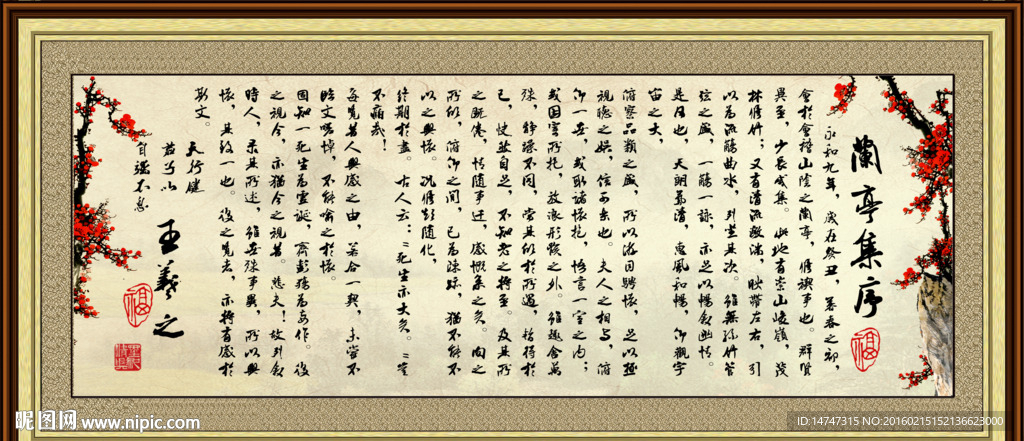 蘭亭集序
福
永和九年，歲在癸丑，暮春之初，
會於會稽山陰之蘭亭，修禊事也。群賢
畢至，少長咸集。此地有崇山峻嶺，茂
林修竹；又有清流激湍，映帶左右，引
以為流觴曲水，列坐其次。雖無絲竹管
弦之盛，一觴一詠，亦足以暢敘幽情。
是日也，天朗氣清，惠風和暢，仰觀宇
宙之大，
俯察品類之盛，所以游目騁懷，足以極
視聽之娛，信可樂也。夫人之相與，俯
仰一世，或取諸懷抱，悟言一室之內；
或因寄所托，放浪形骸之外。雖趣舍萬
殊，靜躁不同，當其欣於所遇，暫得於
己，快然自足，不知老之將至。及其所
之既倦，情隨事迁，感慨系之矣。向之
所欣，俯仰之間，已為陳跡，猶不能不
以之興懷。況修短隨化，
終期於盡。古人云：“死生亦大矣。”豈
不痛哉！
每覽昔人興感之由，若合一契，未嘗不
臨文嗟悼，不能喻之於懷。
固知一死生為虛誕，齊彭殤為妄作。後
之視今，亦猶今之視昔。悲夫！故列敘
時人，錄其所述，雖世殊事異，所以興
懷，其致一也。後之覽者，亦將有感於
斯文。
天行健
君子以
自強不息
王羲之
福
昵图网 www.nipic.com
ID:14747315 NO:20160215152136623000